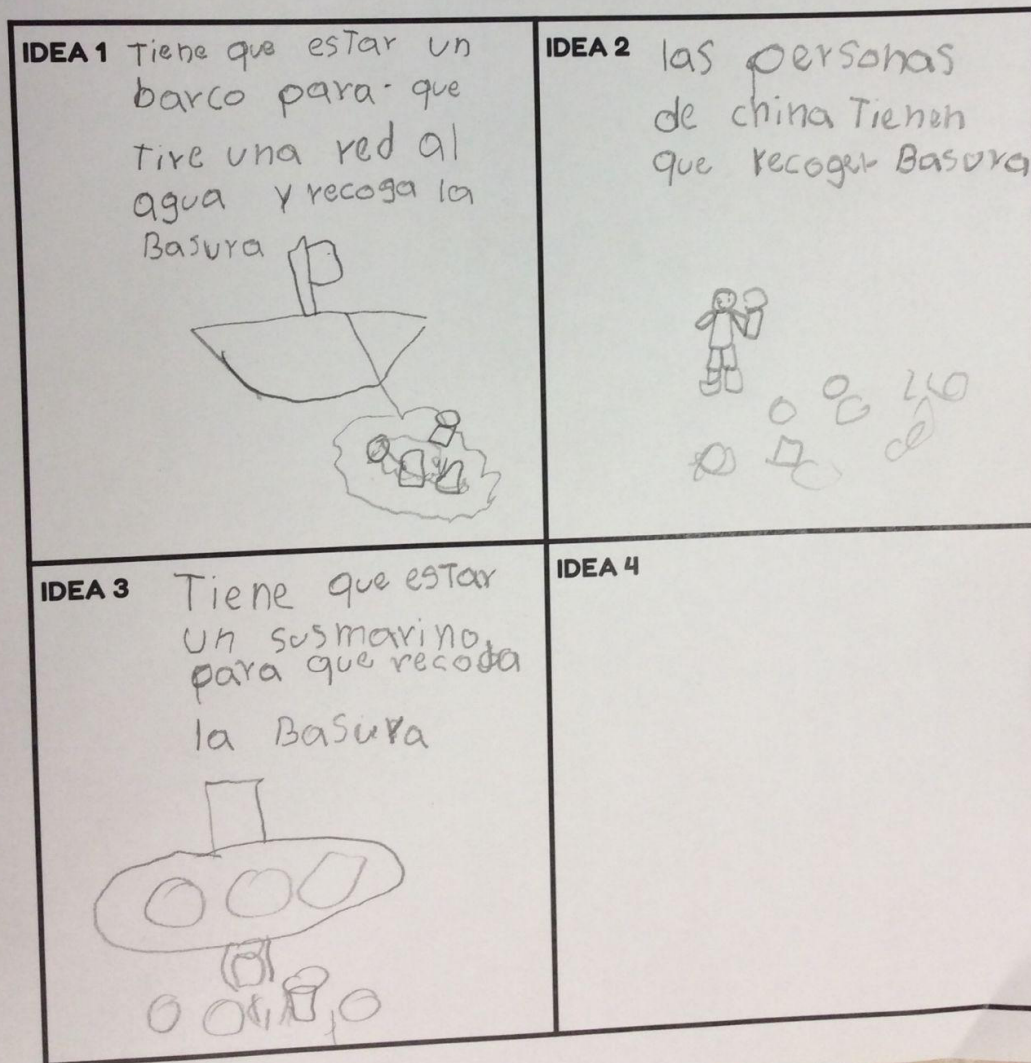 IDEA 1 Tiene que esTar un
barco para que
Tire una red al
agua y recoga la
Basura
IDEA 2 las personas
de china Tienen
que recoger Basura
IDEA 3 Tiene que esTar
un susmarino
para que recoga
la Basura
IDEA 4